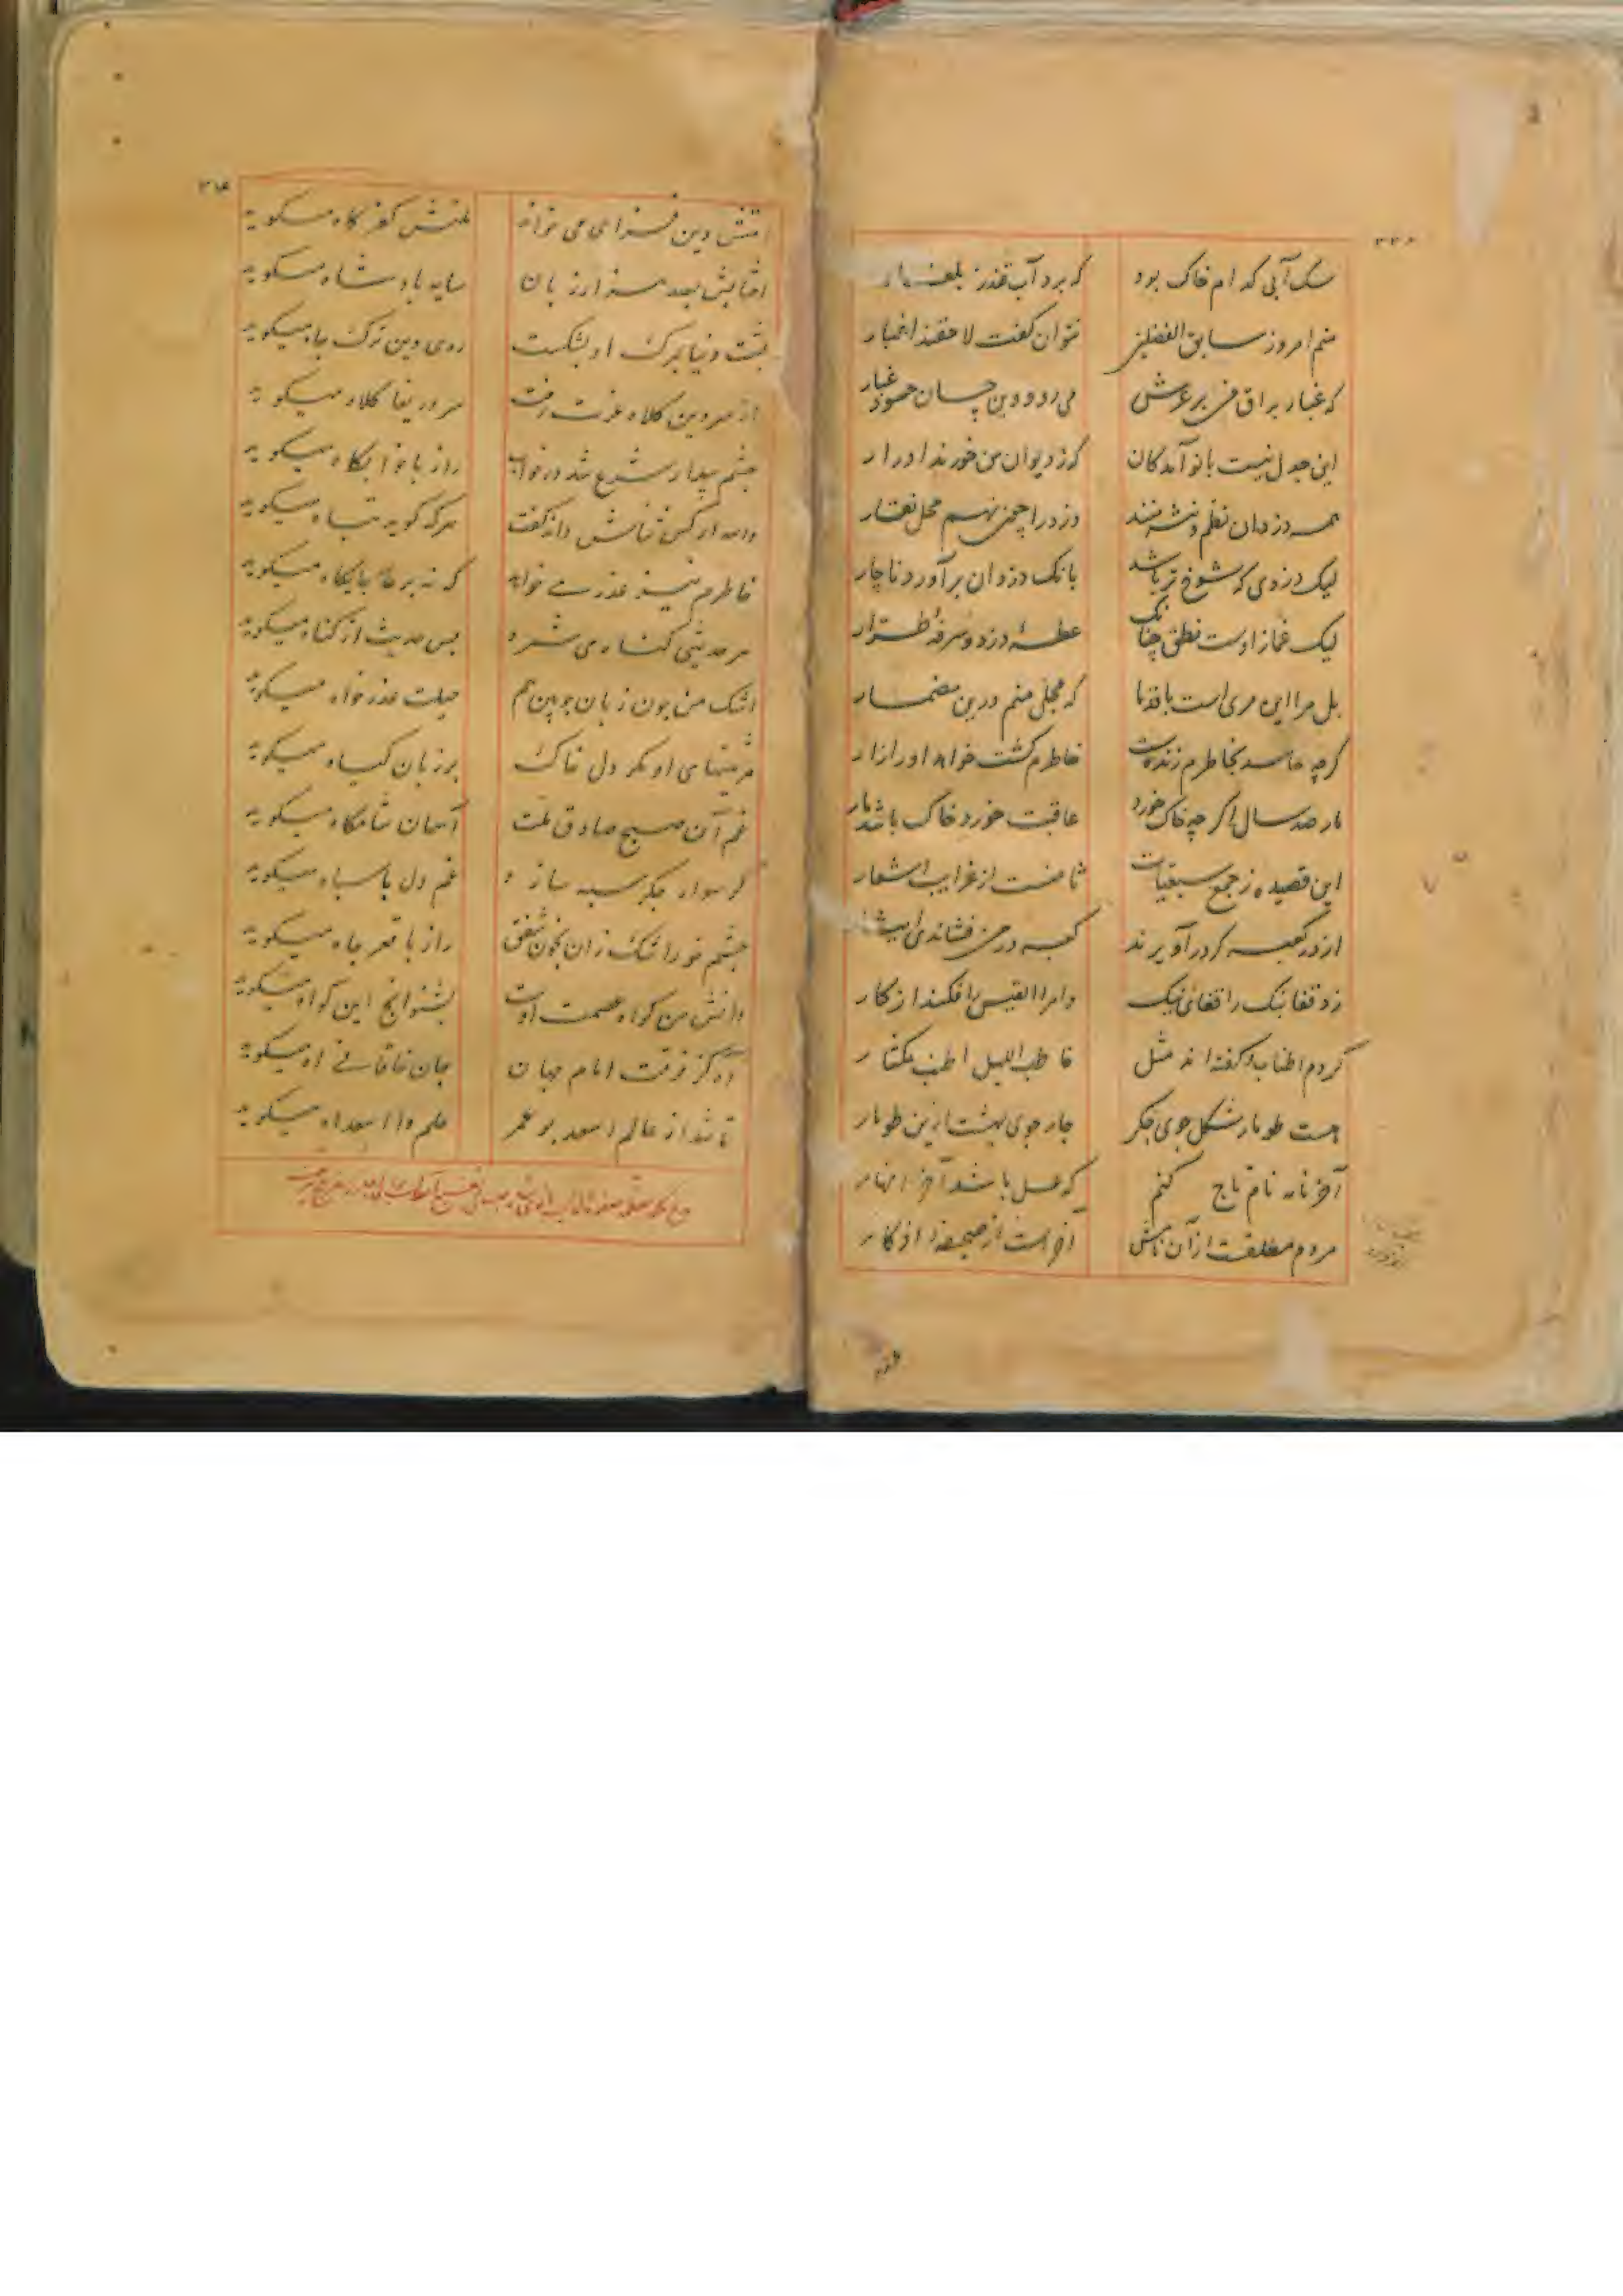 سک آبی کدام خاک بود که برد آب قندز بلغار
منم امروز سابق الفضلین نتوان گفت لاحقند اغیار
که غبار براق من بر عرش می رود وین خسان حسود غبار
این جدل نیست با نوآمدگان کز دیوان من خورند ادرار
همه دزدان نظم و نثر منند دزد را چون نهم محل نقار
لیک دزدی که شوخ تر باشد بانک دزدان برآورد ناچار
لیک غماز اوست نطق چنانک عطسه دزد و سرفه طرار
بل مرا این مری است با قدما که مجلی منم درین مضمار
کرچه حاسد بخاطرم زنده است خاطرم کشت خواهد او را زار
مار صد سال اکر چه خاک خورد عاقبت خورد خاک باشد مار
این قصیده ز جمع سبعیات ثامنست از غرایب اشعار
از در کعبه کر درآویزند کعبه در من فشاندی استار
زد قفانبک را قفای نیک وامرا القیس را فکند از کار
کردم اطناب و گفته اند مثل حاطب اللیل اطنب مکثار
هست طومار شکل جوی جکر چار جوی بهشت ازین طومار
آخر نامه نام تاج کنم که عسل باشد آخر انهار
مردم مطلقست از آن نامش آخر است از صحیفه اذکار
۳۱۸
امتش دین فزای می خواند ملتش کفر کاه میکوید
اختبایش بصد هزار زبان سایه پادشاه میکوید
پشت دنیا بمرک او بشکست روی دین ترک جاه میکوید
از سر دین کلاه عزت رفت سر دریغا کلاه میکوید
چشم بیدار شرع شد در خواب راز با خوابکاه میکوید
هرکه کوید تباه میکوید
خاطرم نیز عذر می خواهد که نه بر جایکاه میکوید
هر حدیثی کناه می شمرد پس حدیث از کناه میکوید
اشک من چون زبان خونین هم حیلت عذرخواه میکوید
مرثیتهای او مکر دل خاک بر زبان کیاه میکوید
غم آن صبح صادق ملت آسمان شامکاه میکوید
غم دل با سپاه میکوید
چشم خورشید راز با قعر چاه میکوید
دانش من کواه عصمت اوست بشنو آنچ این کواه میکوید
آه کز فرقت امام جهان جان خاقانی آه میکوید
تا شد از عالم اسعد بو عمر علم وا اسعداه میکوید